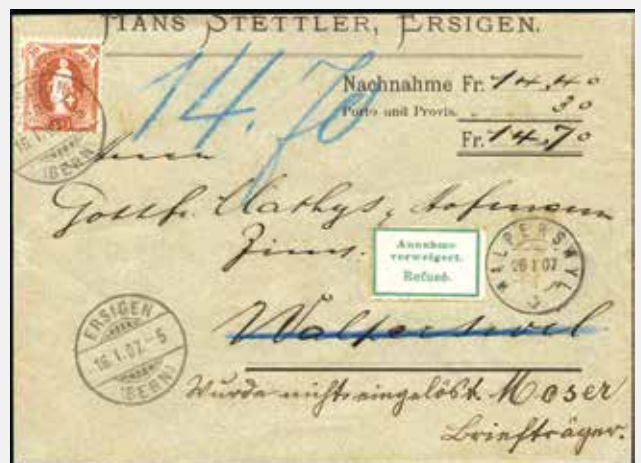 HANS STETTLER, ERSIGEN.
14.70
Nachnahme Fr. 14.40
Porto und Provis. 30
Fr. 14,70
Herrn
Gottfr. Mathys, Hofmann
Zims.
Annahme
verweigert.
Refusé.
WALPERSWYL
26 I 07
Walperswil
ERSIGEN
16.I.07.-5
(BERN)
16.I.07
(BERN)
Wurde nicht eingelöst. Moser
Briefträger.